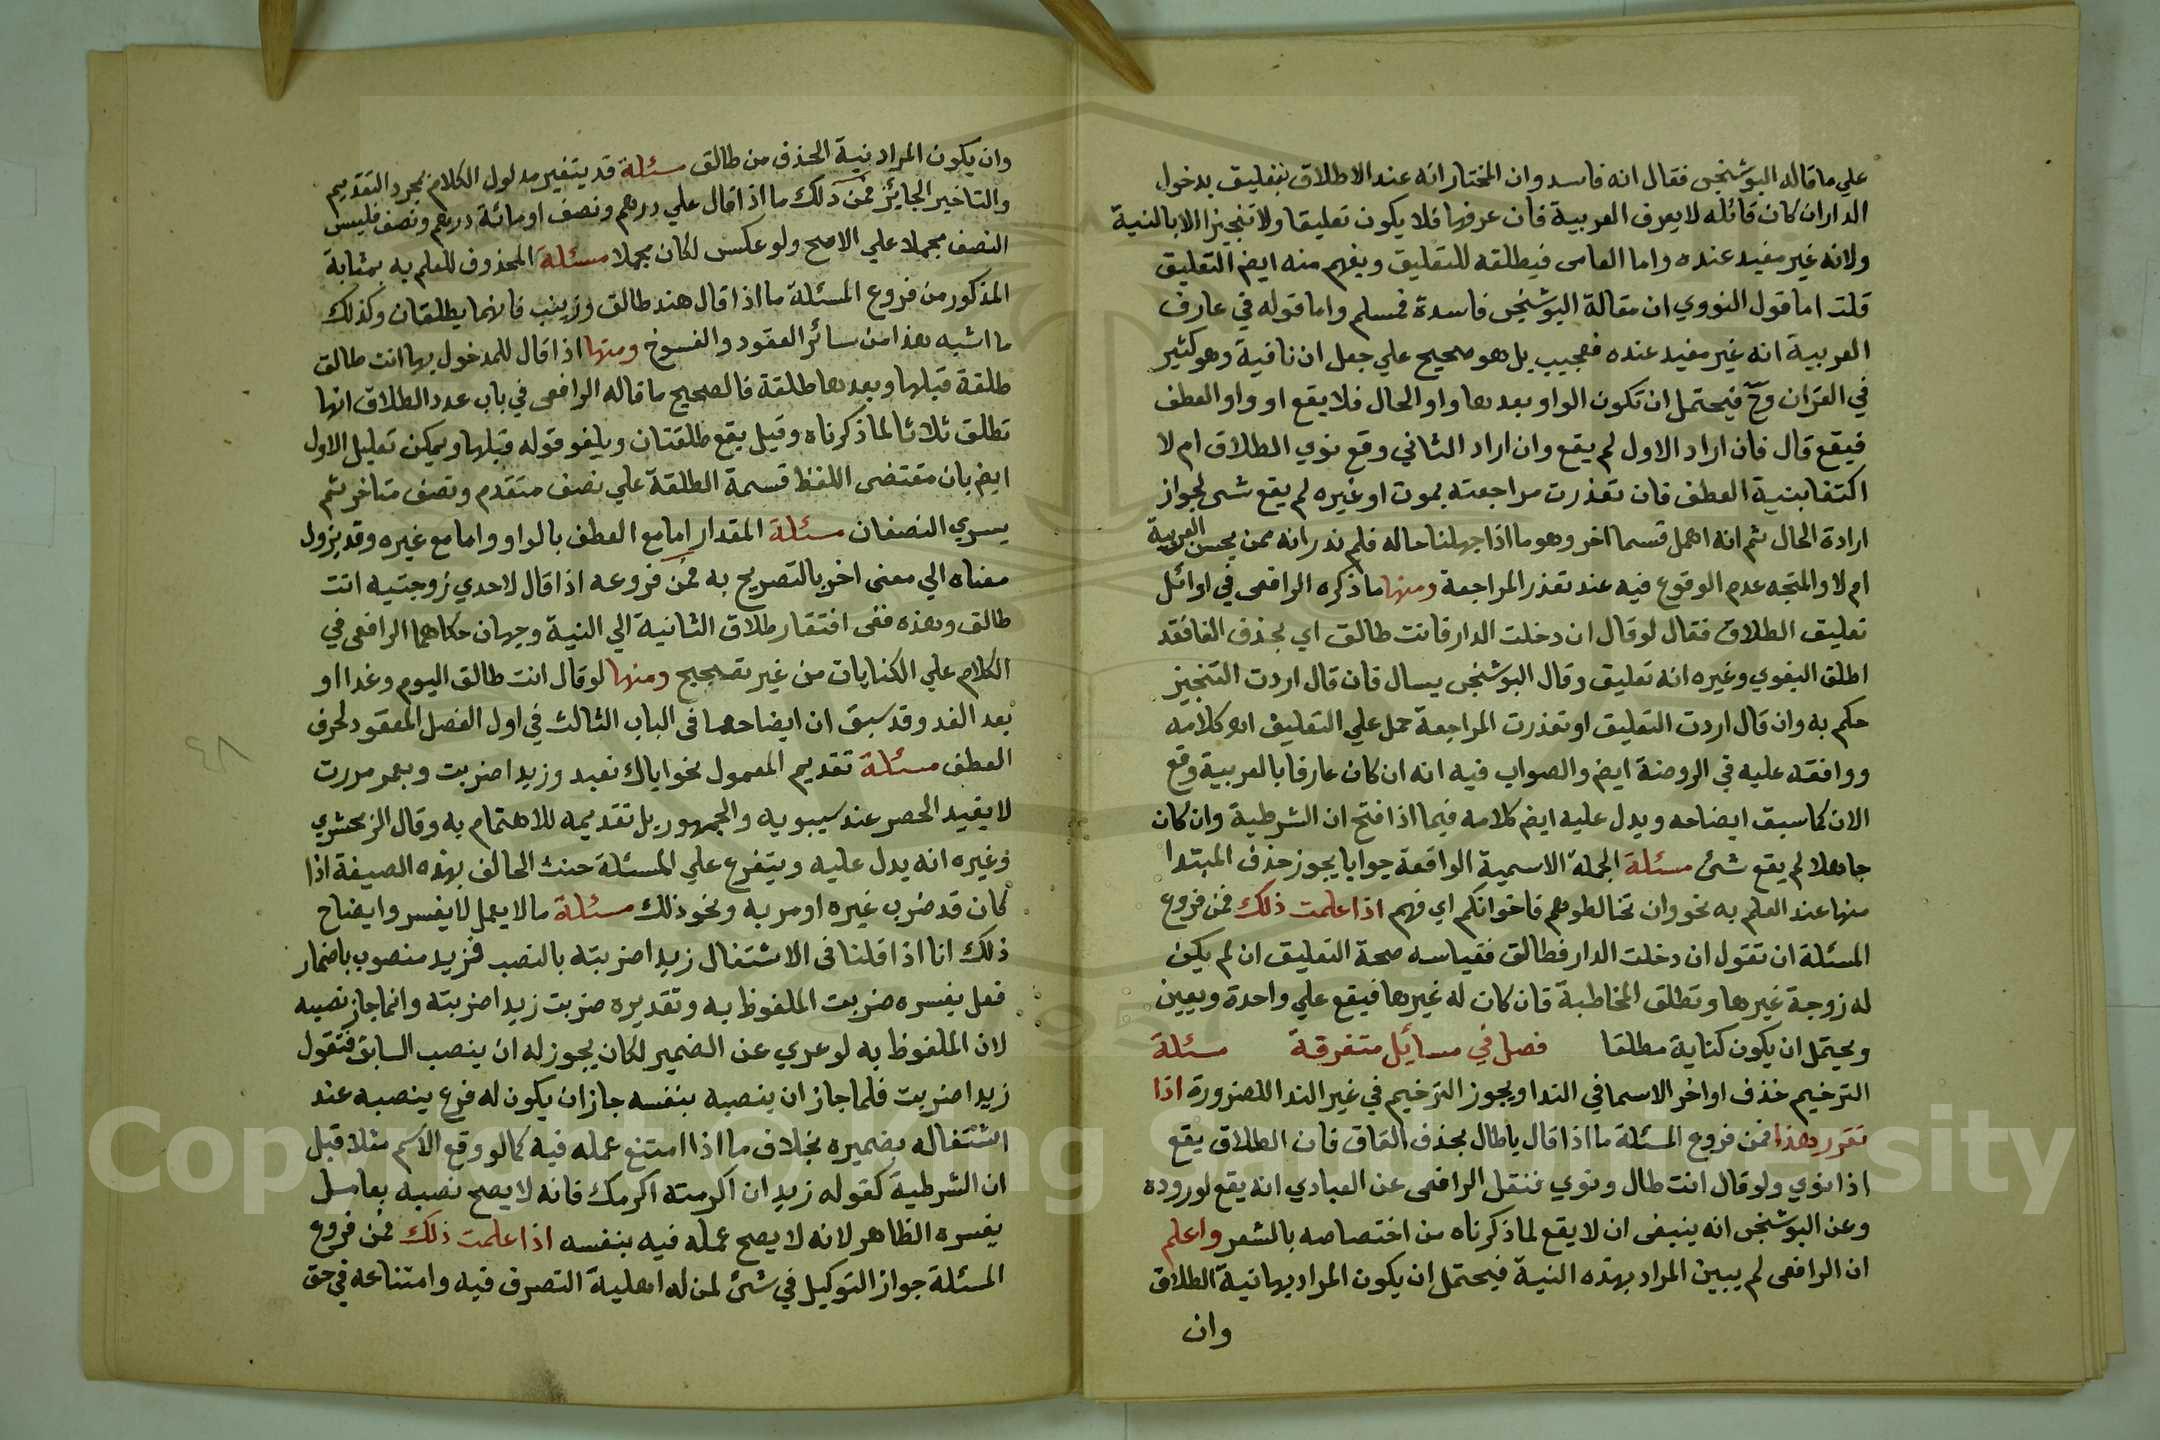 علي ما قاله البوشنجي فقال انه فاسد وان المختار انه عند الاطلاق بتعليق بدخول
الدار ان كان قائله لا يعرف العربية فان عرفها فلا يكون تعليقا ولا تنجيزا الا بالنية
ولانه غير مفيد عنده واما العامى فيطلقه للتعليق ويفهم منه ايضا التعليق
قلت اما قول النووي ان مقالة البوشنجي فاسدة فمسلم واما قوله في عارف
العربية انه غير مفيد عنده فعجيب بل هو صحيح علي جعل ان نافية وهو كثير
في القران وح فيحتمل ان تكون الواو بعدها واو الحال فلا يقع او واو العطف
فيقع قال فان اراد الاول لم يقع وان اراد الثاني وقع نوي الطلاق ام لا
اكتفا بنية العطف فان تعذرت مراجعته بموت او غيره لم يقع شى لجواز
ارادة الحال ثم انه اهمل قسما اخر وهو ما اذا جهلنا حاله فلم ندر انه ممن يحسن العربية
ام لا والمتجه عدم الوقوع فيه عند تعذر المراجعة ومنها ما ذكره الرافعى في اوائل
تعليق الطلاق فقال لو قال ان دخلت الدار فانت طالق اي بحذف الفا فقد
اطلق البغوي وغيره انه تعليق وقال البوشنجى يسال فان قال اردت التنجيز
حكم به وان قال اردت التعليق او تعذرت المراجعة حمل علي التعليق اه كلامه
ووافقه عليه في الروضة ايضا والصواب فيه انه ان كان عارفا بالعربية وقع
الان كما سبق ايضاحه ويدل عليه ايضا كلامه فيما اذا فتح ان الشرطية وان كان
جاهلا لم يقع شئ مسئلة الجملة الاسمية الواقعة جوابا يجوز حذف المبتدا
منها عند العلم به نحو وان تخالطوهم فاخوانكم اي فهم اذا علمت ذلك فمن فروع
المسئلة ان تقول ان دخلت الدار فطالق فقياسه صحة التعليق ان لم يكن
له زوجة غيرها وتطلق المخاطبة فان كان له غيرها فيقع علي واحدة ويعين
ويحتمل ان يكون كناية مطلقا فصل في مسايل متفرقة مسئلة
الترخيم حذف اواخر الاسما في الندا ويجوز الترخيم في غير الندا للضرورة اذا
تقرر هذا فمن فروع المسئلة ما اذا قال يا طال بحذف القاف فان الطلاق يقع
اذا نوي ولو قال انت طال ونوي فنقل الرافعى عن العبادي انه يقع لوروده
وعن البوشنجى انه ينبغى ان لا يقع لما ذكرناه من اختصاصه بالشعر واعلم
ان الرافعى لم يبين المراد بهذه النية فيحتمل ان يكون المراد بها نية الطلاق
وان
وان يكون المراد نية الحذف من طالق مسئلة قد يتغير مدلول الكلام بمجرد التقديم
والتاخير الجايز فمن ذلك ما اذا قال علي درهم ونصف او مائة درهم ونصف فليس
النصف مجملا علي الاصح ولو عكس لكان مجملا مسئلة المحذوف للعلم به بمثابة
المذكور من فروع المسئلة ما اذا قال هند طالق وزينب فانهما يطلقان وكذلك
ما اشبه هذا من سائر العقود والفسوخ ومنها اذا قال للمدخول بها انت طالق
طلقة قبلها وبعدها طلقة فالصحيح ما قاله الرافعى في باب عدد الطلاق انها
تطلق ثلاثا لما ذكرناه وقيل يقع طلقتان ويلغو قوله قبلها ويمكن تعليل الاول
ايضا بان مقتضى اللفظ قسمة الطلقة علي نصف متقدم ونصف متاخر ثم
يسري النصفان مسئلة المقدار اما مع العطف بالواو واما مع غيره وقد يزول
معناه الي معنى اخر بالتصريح به فمن فروعه اذا قال لاحدي زوجتيه انت
طالق وهذه ففى افتقار طلاق الثانية الي النية وجهان حكاهما الرافعى في
الكلام علي الكنايات من غير تصحيح ومنها لو قال انت طالق اليوم وغدا او
بعد الغد وقد سبق ان ايضاحها فى الباب الثالث في اول الفصل المعقود لحرف
العطف مسئلة تقديم المعمول نحو اياك نعبد وزيدا ضربت وبعمر مررت
لا يفيد الحصر عند سيبويه والجمهور بل تقديمه للاهتمام به وقال الزمخشري
وغيره انه يدل عليه ويتفرع علي المسئلة حنث الحالف بهذه الصيغة اذا
كان قد ضرب غيره او مر به ونحو ذلك مسئلة ما لا يعمل لا يفسر وايضاح
ذلك انا اذا قلنا فى الاشتغال زيدا ضربته بالنصب فزيد منصوب باضمار
فعل يفسره ضربت الملفوظ به وتقديره ضربت زيدا ضربته وانما جاز نصبه
لان الملفوظ به لو عري عن الضمير لكان يجوز له ان ينصب السابق فتقول
زيدا ضربت فلما جاز ان ينصبه بنفسه جاز ان يكون له فرع ينصبه عند
اشتغاله بضميره بخلاف ما اذا امتنع عمله فيه كما لو وقع الاسم مثلا قبل
ان الشرطية كقوله زيد ان اكرمته اكرمك فانه لا يصح نصبه بعامل
يفسره الظاهر لانه لا يصح عمله فيه بنفسه اذا علمت ذلك فمن فروع
المسئلة جواز التوكيل في شئ لمن له اهلية التصرف فيه وامتناعه في حق
٤٨
Copyright © King Saud University